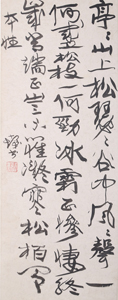 亭〻山上松瑟〻谷中風〻聲一
何盛松枝一何勁冰霜正慘悽終
歲常端正豈不罹凝寒松柏有
本性